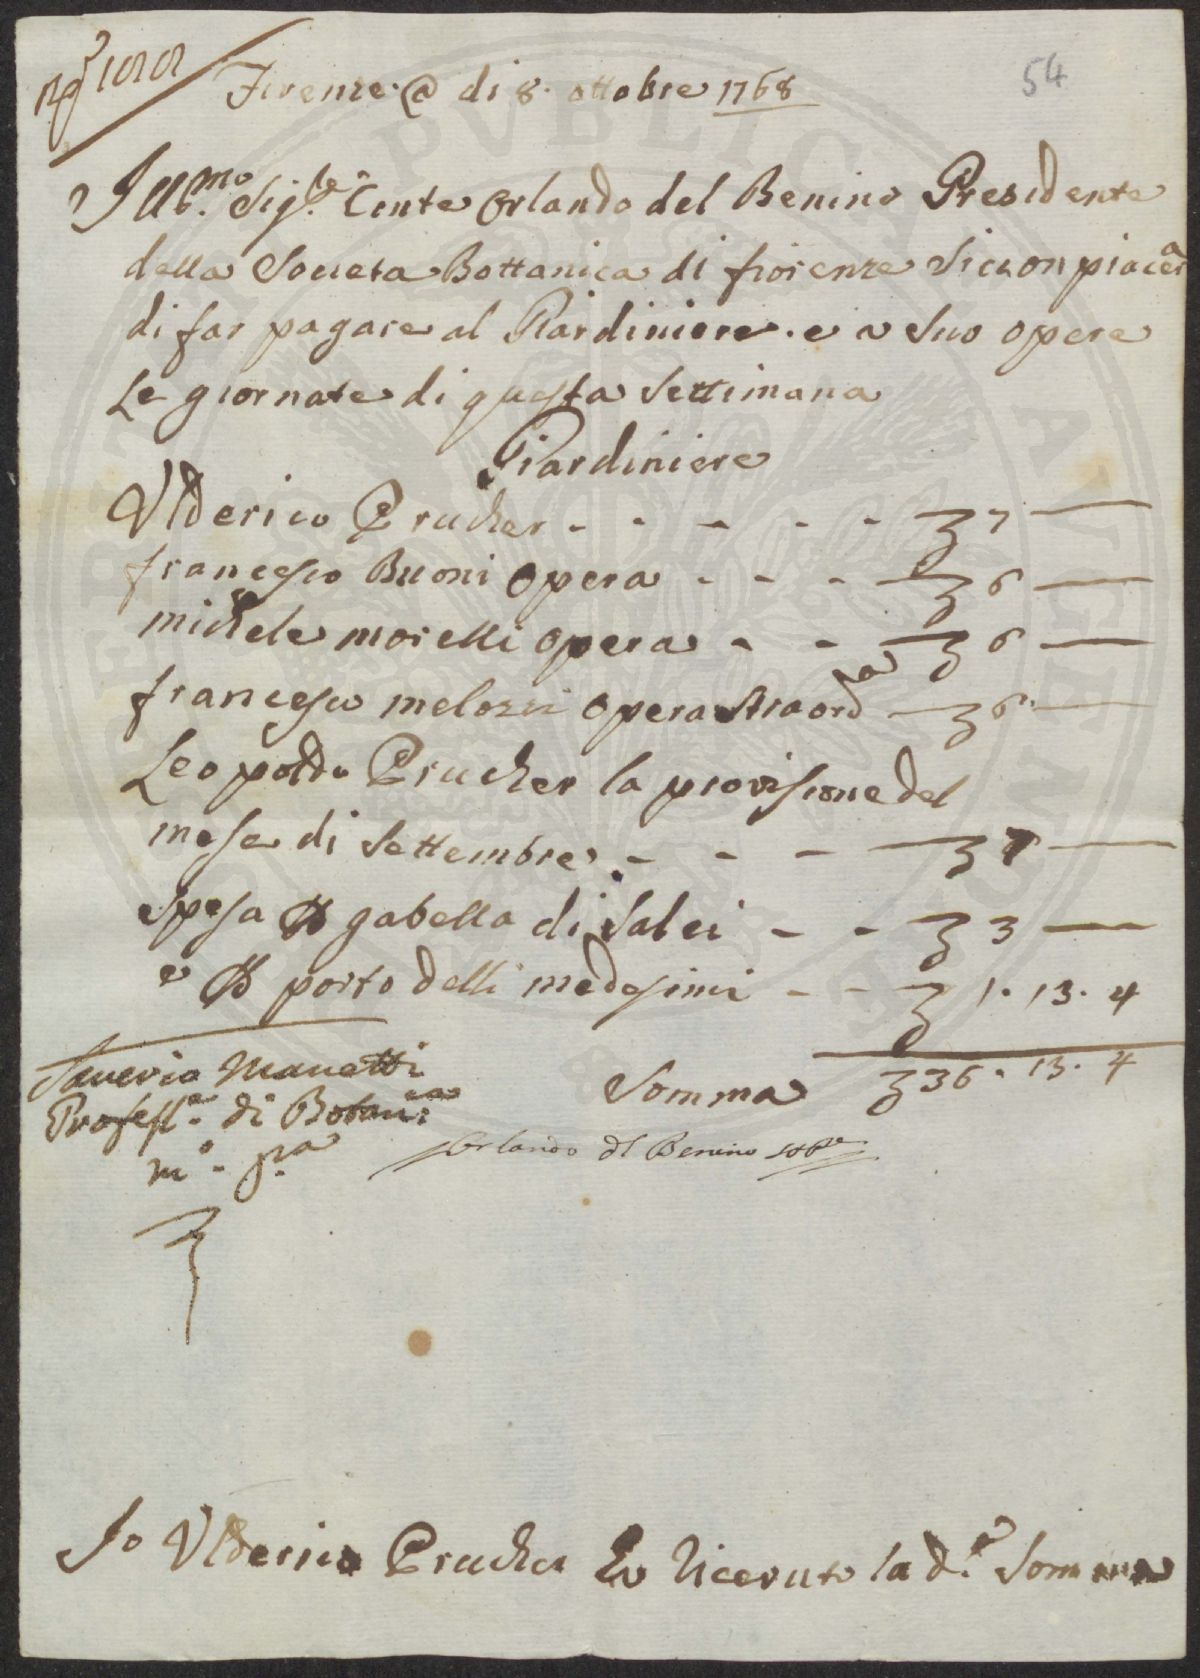 54
Firenze @ di 8. ottobre 1768
Ill.mo Sig.re Conte Orlando del Benino Presidente
della Societa Bottanica di fiorenze Si conpiacera
di far pagare al Giardiniere. e a Suo opere
Le giornate di questa Settimana
Giardiniere
Ulderico Prucher - - - - - 7 —
francesco Buoni opera - - - 6 —
michele morelli opera - - 6 —
francesco melozzi opera straord.ra 6 —
Leopoldo Prucher la provisione del
mese di Settembre - - - 7 —
Spesa per gabella di Salci - - 3 —
e per porto delli medesimi - - 1. 13. 4
Somma 36. 13. 4
Saverio Manetti
Profess.e di Botan.ca
m.o p.a
Orlando del Benino
Io Ulderico Prucher ho Riceuto la d.a Somma